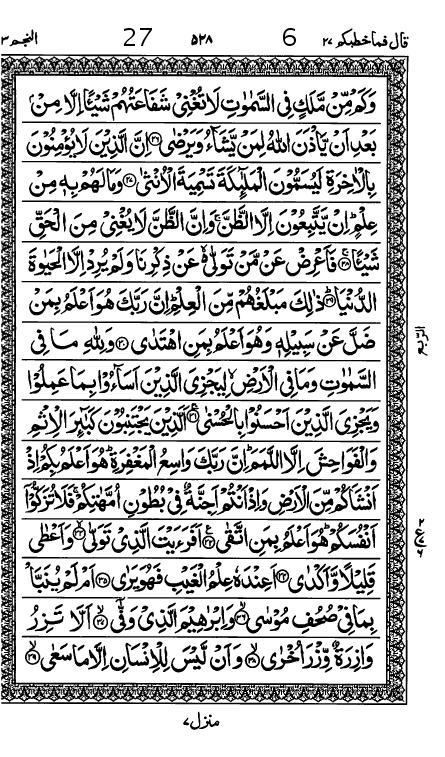 قال فما خطبکم ۲۷ 6 ۵۲۸ 27 النجم ۵۳
وَكَمْ مِّنْ مَّلَكٍ فِى السَّمٰوٰتِ لَا تُغْنِىْ شَفَاعَتُهُمْ شَيْئًا اِلَّا مِنْۢ
بَعْدِ اَنْ يَّاْذَنَ اللّٰهُ لِمَنْ يَّشَآءُ وَيَرْضٰى ۝۲۶ اِنَّ الَّذِيْنَ لَا يُؤْمِنُوْنَ
بِالْاٰخِرَةِ لَيُسَمُّوْنَ الْمَلٰٓئِكَةَ تَسْمِيَةَ الْاُنْثٰى ۝۲۷ وَمَا لَهُمْ بِهٖ مِنْ
عِلْمٍ ؕ اِنْ يَّتَّبِعُوْنَ اِلَّا الظَّنَّ ۚ وَاِنَّ الظَّنَّ لَا يُغْنِىْ مِنَ الْحَقِّ
شَيْئًا ۝۲۸ فَاَعْرِضْ عَنْ مَّنْ تَوَلّٰى ۙ عَنْ ذِكْرِنَا وَلَمْ يُرِدْ اِلَّا الْحَيٰوةَ
الدُّنْيَا ۝۲۹ ذٰلِكَ مَبْلَغُهُمْ مِّنَ الْعِلْمِ ؕ اِنَّ رَبَّكَ هُوَ اَعْلَمُ بِمَنْ
ضَلَّ عَنْ سَبِيْلِهٖ وَهُوَ اَعْلَمُ بِمَنِ اهْتَدٰى ۝۳۰ وَلِلّٰهِ مَا فِى
السَّمٰوٰتِ وَمَا فِى الْاَرْضِ ۙ لِيَجْزِىَ الَّذِيْنَ اَسَآءُوْا بِمَا عَمِلُوْا
وَيَجْزِىَ الَّذِيْنَ اَحْسَنُوْا بِالْحُسْنٰى ۝۳۱ اَلَّذِيْنَ يَجْتَنِبُوْنَ كَبٰٓئِرَ الْاِثْمِ
وَالْفَوَاحِشَ اِلَّا اللَّمَمَ ؕ اِنَّ رَبَّكَ وَاسِعُ الْمَغْفِرَةِ ؕ هُوَ اَعْلَمُ بِكُمْ اِذْ
اَنْشَاَكُمْ مِّنَ الْاَرْضِ وَاِذْ اَنْتُمْ اَجِنَّةٌ فِىْ بُطُوْنِ اُمَّهٰتِكُمْ ۚ فَلَا تُزَكُّوْۤا
اَنْفُسَكُمْ ؕ هُوَ اَعْلَمُ بِمَنِ اتَّقٰى ۝۳۲ اَفَرَءَيْتَ الَّذِىْ تَوَلّٰى ۝۳۳ وَاَعْطٰى
قَلِيْلًا وَّاَكْدٰى ۝۳۴ اَعِنْدَهٗ عِلْمُ الْغَيْبِ فَهُوَ يَرٰى ۝۳۵ اَمْ لَمْ يُنَبَّاْ
بِمَا فِىْ صُحُفِ مُوْسٰى ۝۳۶ وَاِبْرٰهِيْمَ الَّذِىْ وَفّٰىٓ ۝۳۷ اَلَّا تَزِرُ
وَازِرَةٌ وِّزْرَ اُخْرٰى ۝۳۸ وَاَنْ لَّيْسَ لِلْاِنْسَانِ اِلَّا مَا سَعٰى ۝۳۹
الربع
منزل ۷